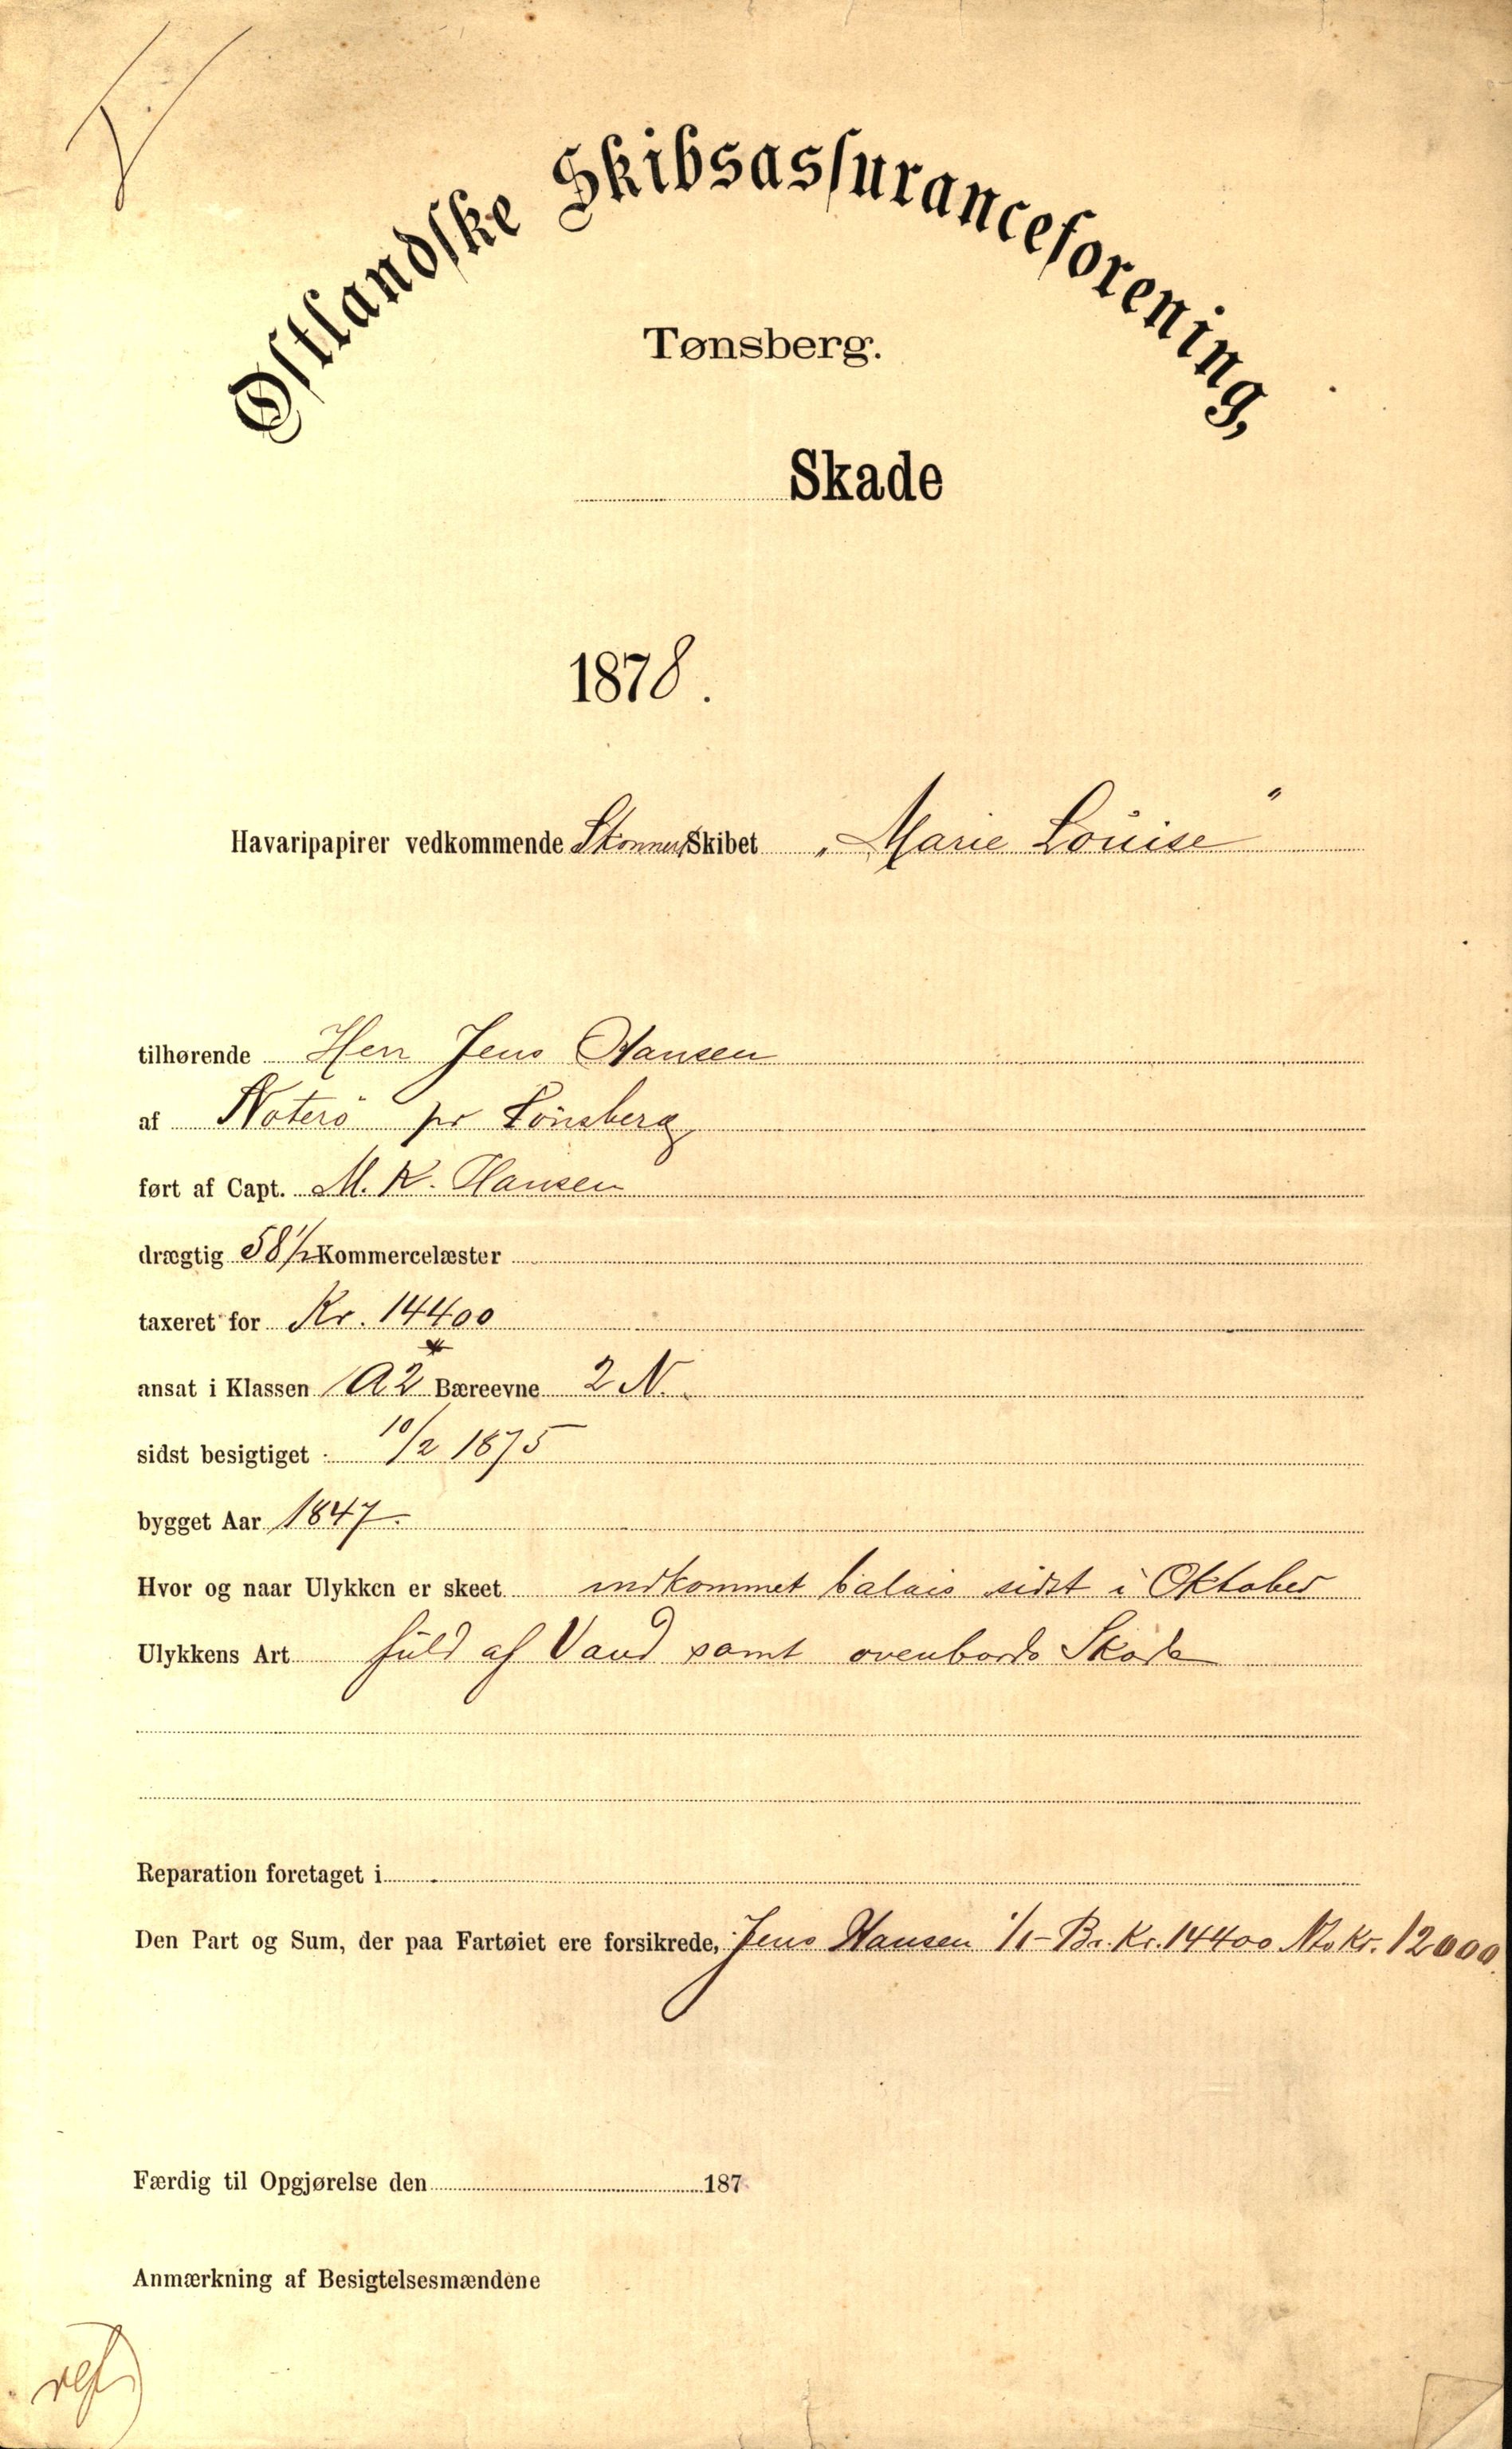 Østlandske Skibsassuranceforening,
Tønsberg.
Skade
1878.
Havaripapirer vedkommende Skonnert Skibet „Marie Louise"
tilhørende Herr Jens Hansen
af Nøterö pr Tönsberg
ført af Capt. M. K. Hansen
drægtig 58 1/2 Kommercelæster
taxeret for Kr. 14400
ansat i Klassen A2* Bæreevne 2 N.
sidst besigtiget 10/2 1875
bygget Aar 1847.
Hvor og naar Ulykken er skeet indkommet Calais sidst i Oktober
Ulykkens Art fuld af Vand samt ovenbords Skade
Reparation foretaget i
Den Part og Sum, der paa Fartøiet ere forsikrede, Jens Hansen 1/1 - Br. Kr. 14400 Nto Kr. 12000.
Færdig til Opgjørelse den 187
Anmærkning af Besigtelsesmændene